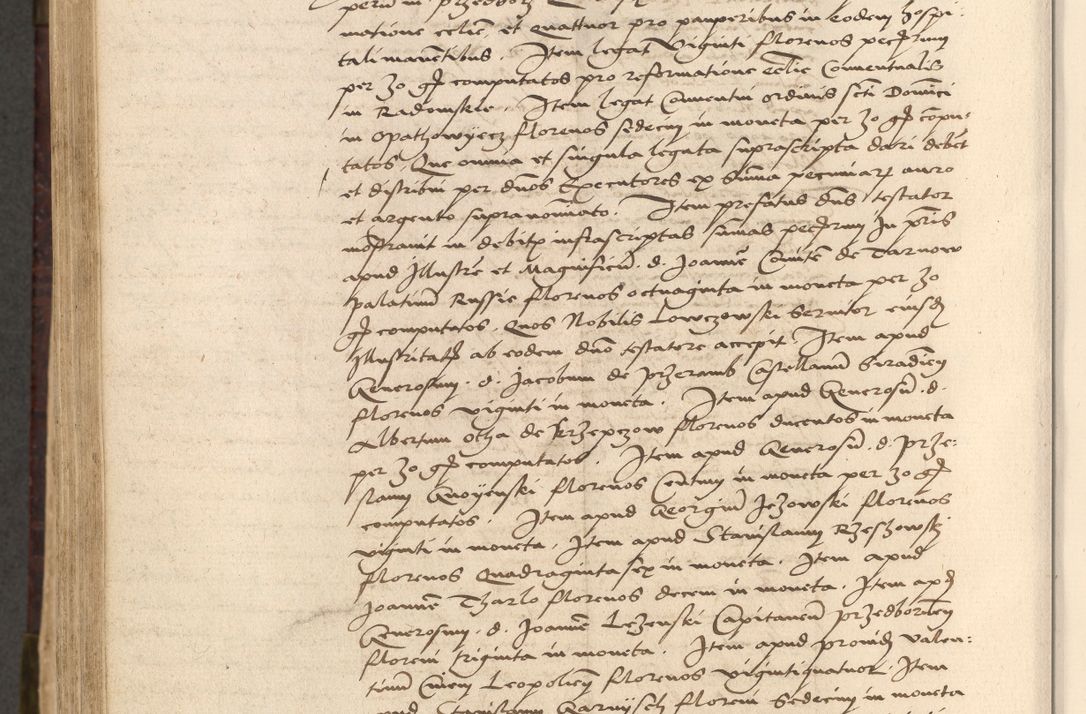 matione eccliæ, et quattuor pro pauperibus in eodem hospi:
tali manẽtibus. Item legat Viginti florenos
per 30 gꝭ computatos pro reformatione ecclie Conuentualis
in Radomskie. Item legat Conuentui ordinis scti Domĩci
in Opathowyecz florenos sedecim in moneta per 30 gꝭ cõpu:
tatos. Que omnia et singula legata suprascripta dari debẽt
et distribui per dños Executores ex summa pecuniarꝝ auro
et argento supranoĩato. Item prefatus dñs testator
in debitꝭ infrascriptas sumas In pris
apud Illustrẽ et Magnificũ. d. Joannẽ Comitẽ de Tarnow
palatinũ Russie florenos octuaginta in moneta per 30
gꝭ computatos. Quos Nobilis Lowczowski Seruitor eiusdẽ
Illustritatꝭ ab eodem dño testatore accepit. Item apud
Generosum. d. Jacobum de Przeramb Castellanũ Siradieñ
florenos viginti in moneta. Item apud Generosũ. d.
Albertum otha de Krzepczow florenos ducentos in moneta
per 30 gꝭ computatos. Item apud Generosũ. d. Prze:
slaum Gnoyenski florenos Centum in moneta per 30 gꝭ
computatos. Item apud Georgiũ Jezowski florenos
viginti in moneta. Item apud Stanislaum Rzeszowski
florenos Quadraginta sex in moneta. Item apud
Joannẽ Tharlo florenos decem in moneta. Item apd
Generosum. d. Joannẽ Lezenski Capitaneũ Przedborieñ
floreni triginta in moneta. Item apud prouidũ Valen:
tinũ Ciuem Leopolieñ florenos vigintiquatuor. Item
Stanislaum Karnysch floreni Sedecim in moneta